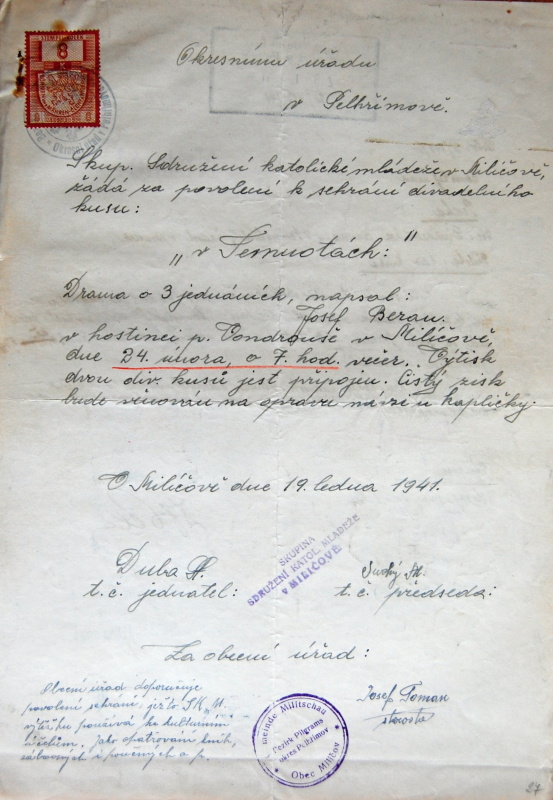 STEMPELMARKEN
8
K
8 8
Okresnímu úřadu
v Pelhřimově.
Skup. Sdružení katolické mládeže v Milíčově,
žádá za povolení k sehrání divadelního
kusu:
„v Temnotách:"
Drama o 3 jednáních, napsal:
Josef Beran.
v hostinci p. Vondrouše v Milíčově,
dne 24. února, o 7. hod. večer. Výtisk
dvou div. kusů jest připojen. Čistý zisk
bude věnován na opravu návsi u kapličky.
V Milíčově dne 19. ledna 1941.
SKUPINA
SDRUŽENÍ KATOL. MLÁDEŽE
v MILIČOVĚ
Duba A.
t.č. jednatel:
Suchý
t.č. předseda:
Za obecní úřad:
Obecní úřad doporučuje
povolení sehrání, jež to S.K.M.
výtěžku používá ke kulturním
účelům. Jako opatřování knih,
zábavných i poučných a p.
Josef Toman
starosta
meinde Militschau
Bezirk Pilgrams
okres Pelhřimov
Obec Miličov
27